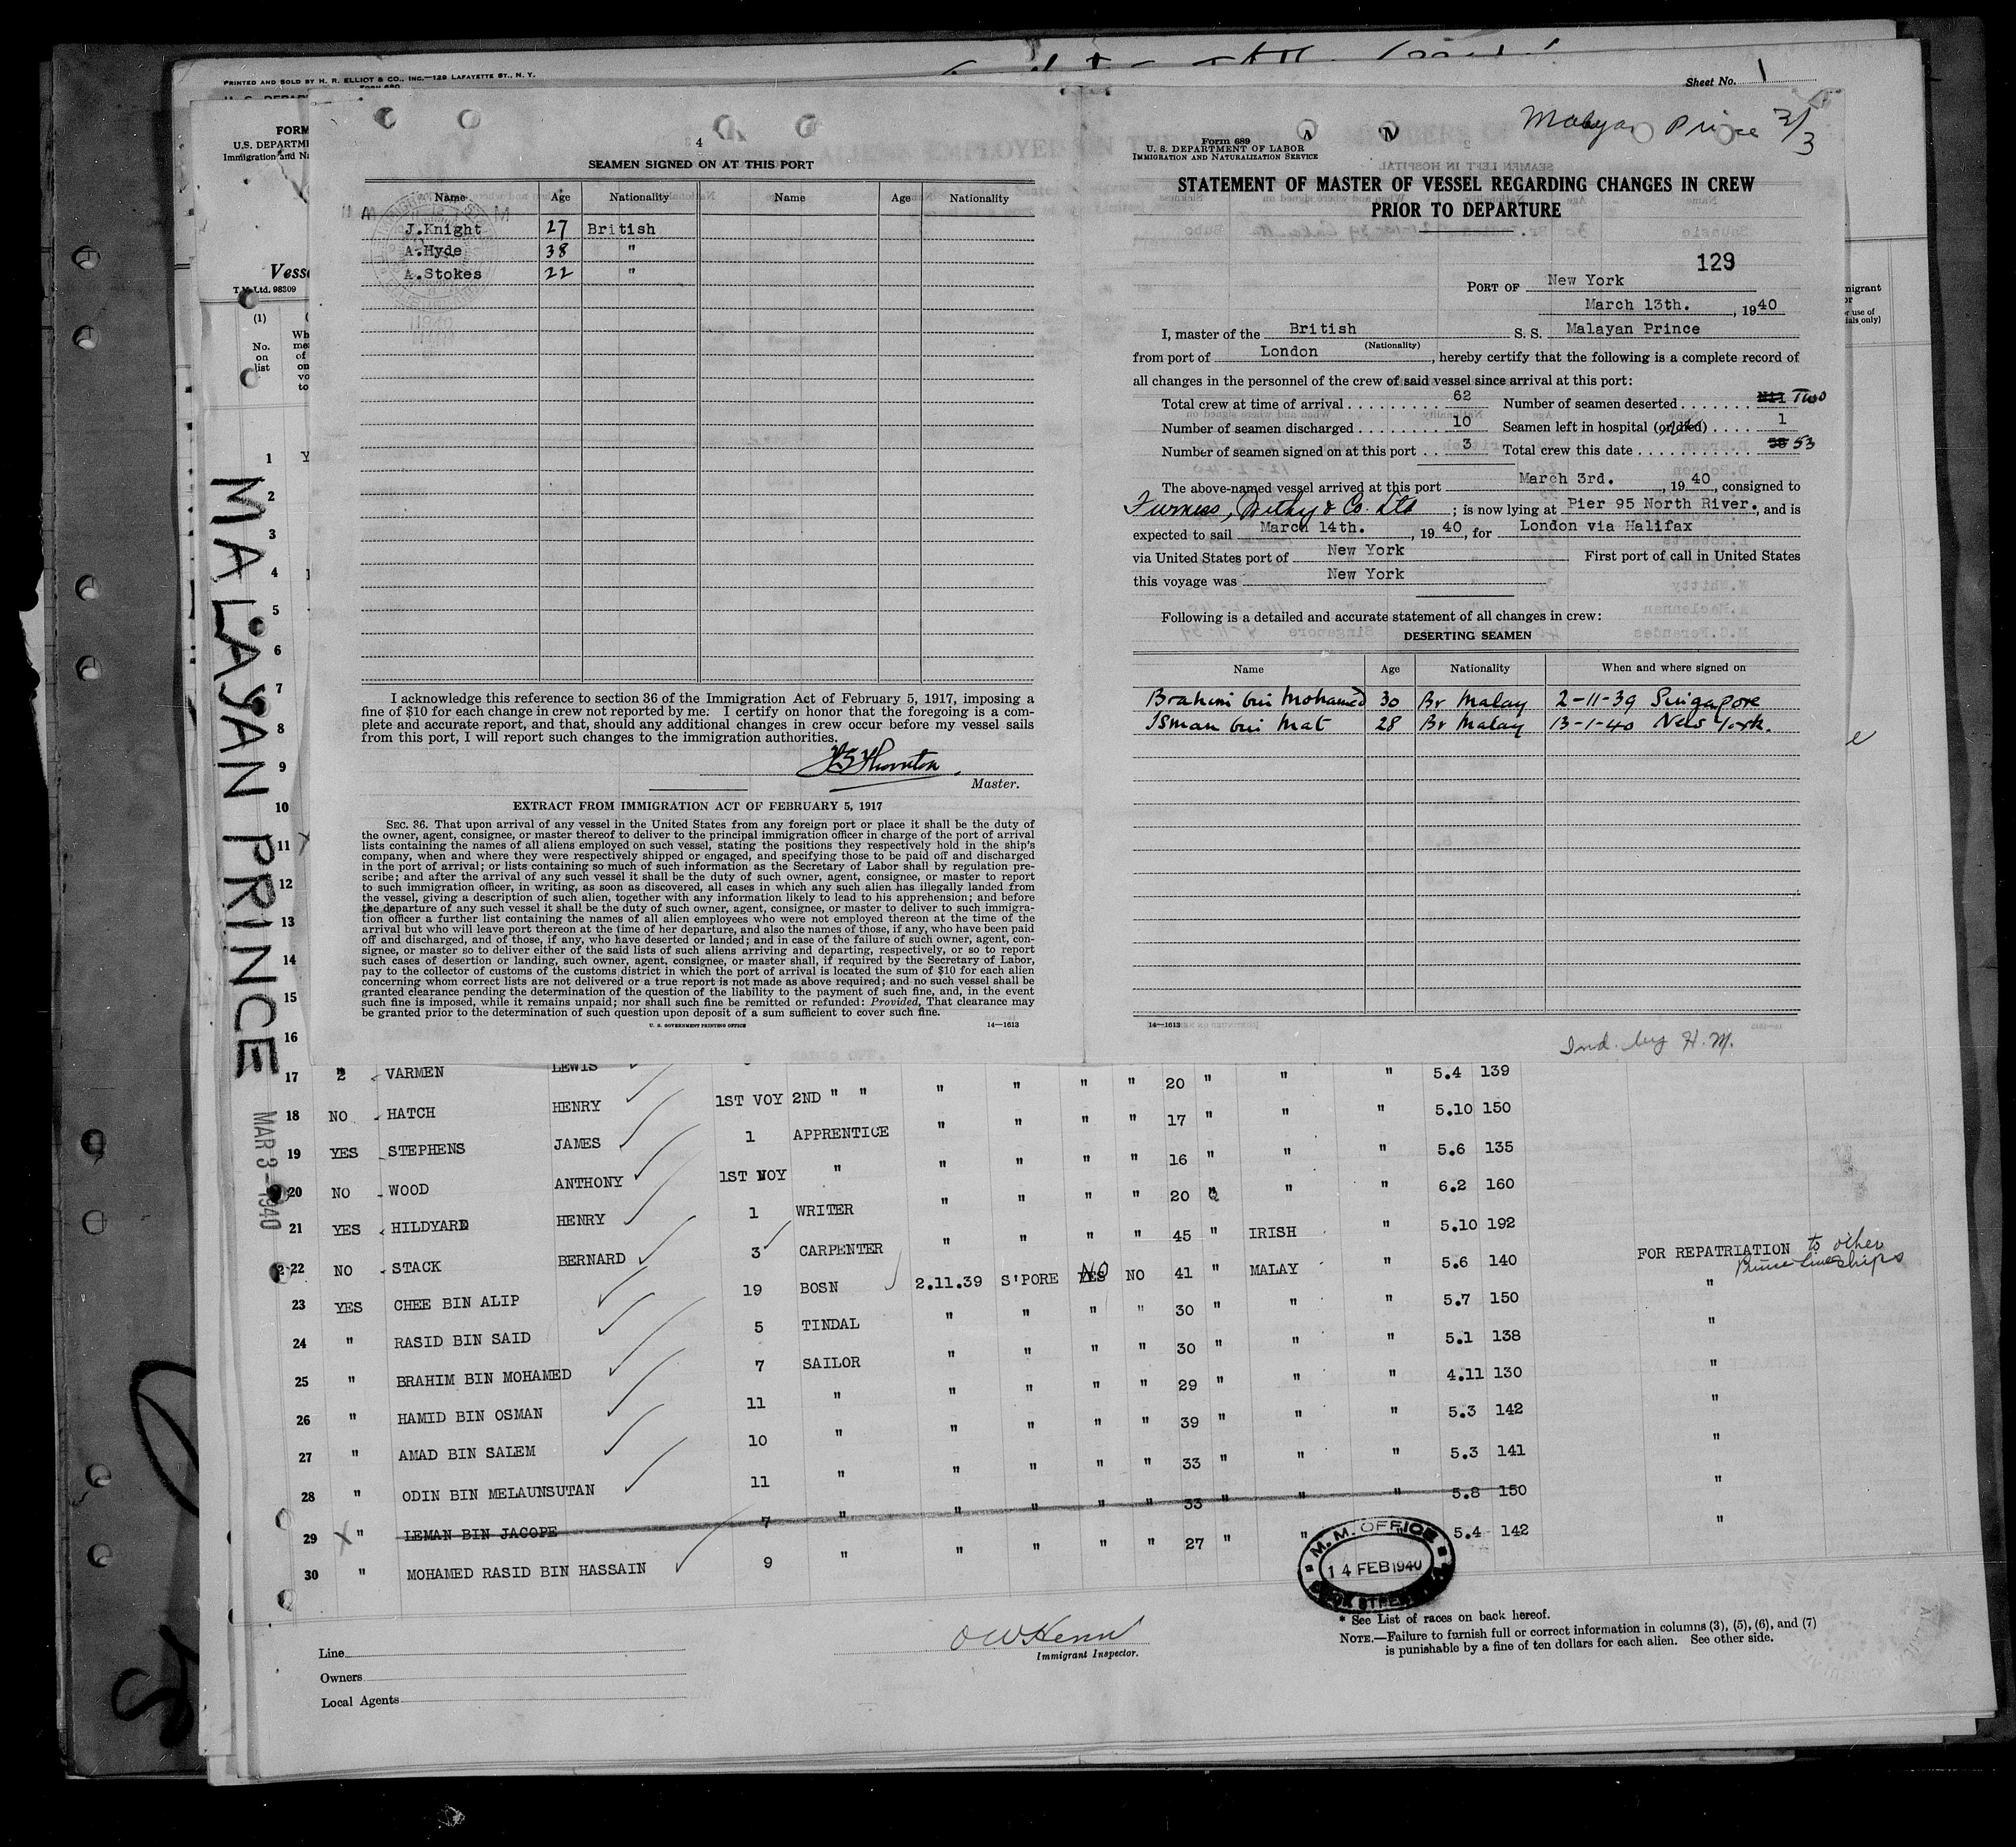 PRINTED AND SOLD BY H. R. ELLIOT & CO., INC.—129 LAFAYETTE ST., N. Y.
Sheet No. 1
FORM
U.S. DEPARTM
Immigration and Na
Vesse
T. Ltd. 98309
(1)
No. on list
MALAYAN PRINCE
MAR 3 - 1940
4
SEAMEN SIGNED ON AT THIS PORT
Name Age Nationality Name Age Nationality
J.Knight 27 British
A.Hyde 38 "
A.Stokes 22 "
I acknowledge this reference to section 36 of the Immigration Act of February 5, 1917, imposing a
fine of $10 for each change in crew not reported by me. I certify on honor that the foregoing is a com-
plete and accurate report, and that, should any additional changes in crew occur before my vessel sails
from this port, I will report such changes to the immigration authorities.
Thornton
Master.
EXTRACT FROM IMMIGRATION ACT OF FEBRUARY 5, 1917
SEC. 36. That upon arrival of any vessel in the United States from any foreign port or place it shall be the duty of
the owner, agent, consignee, or master thereof to deliver to the principal immigration officer in charge of the port of arrival
lists containing the names of all aliens employed on such vessel, stating the positions they respectively hold in the ship's
company, when and where they were respectively shipped or engaged, and specifying those to be paid off and discharged
in the port of arrival; or lists containing so much of such information as the Secretary of Labor shall by regulation pre-
scribe; and after the arrival of any such vessel it shall be the duty of such owner, agent, consignee, or master to report
to such immigration officer, in writing, as soon as discovered, all cases in which any such alien has illegally landed from
the vessel, giving a description of such alien, together with any information likely to lead to his apprehension; and before
the departure of any such vessel it shall be the duty of such owner, agent, consignee, or master to deliver to such immigra-
tion officer a further list containing the names of all alien employees who were not employed thereon at the time of the
arrival but who will leave port thereon at the time of her departure, and also the names of those, if any, who have been paid
off and discharged, and of those, if any, who have deserted or landed; and in case of the failure of such owner, agent, con-
signee, or master so to deliver either of the said lists of such aliens arriving and departing, respectively, or so to report
such cases of desertion or landing, such owner, agent, consignee, or master shall, if required by the Secretary of Labor,
pay to the collector of customs of the customs district in which the port of arrival is located the sum of $10 for each alien
concerning whom correct lists are not delivered or a true report is not made as above required; and no such vessel shall be
granted clearance pending the determination of the question of the liability to the payment of such fine, and, in the event
such fine is imposed, while it remains unpaid; nor shall such fine be remitted or refunded: Provided, That clearance may
be granted prior to the determination of such question upon deposit of a sum sufficient to cover such fine.
U. S. GOVERNMENT PRINTING OFFICE 14—1613
Malayan Prince 3/3
Form 689
U. S. DEPARTMENT OF LABOR
IMMIGRATION AND NATURALIZATION SERVICE
STATEMENT OF MASTER OF VESSEL REGARDING CHANGES IN CREW
PRIOR TO DEPARTURE
129
PORT OF New York
March 13th. , 1940
I, master of the British S. S. Malayan Prince
(Nationality)
from port of London , hereby certify that the following is a complete record of
all changes in the personnel of the crew of said vessel since arrival at this port:
Total crew at time of arrival 62 Number of seamen deserted Nil Two
Number of seamen discharged 10 Seamen left in hospital (or died) 1
Number of seamen signed on at this port 3 Total crew this date 53
The above-named vessel arrived at this port March 3rd. , 1940, consigned to
Furness, Withy & Co. Ltd ; is now lying at Pier 95 North River., and is
expected to sail March 14th. , 1940, for London via Halifax
via United States port of New York First port of call in United States
this voyage was New York
Following is a detailed and accurate statement of all changes in crew:
DESERTING SEAMEN
Name Age Nationality When and where signed on
Brahim bin Mohamed 30 Br Malay 2-11-39 Singapore
Isman bin Mat 28 Br Malay 13-1-40 New York.
14—1613
Ind. by H. M.
17 " VARMEN LEWIS " " " " 20 " " " 5.4 139
18 NO HATCH HENRY 1ST VOY 2ND " " " " " " 17 " " " 5.10 150
19 YES STEPHENS JAMES 1 APPRENTICE " " " " 16 " " " 5.6 135
20 NO WOOD ANTHONY 1ST VOY " " " " " 20 " " " 6.2 160
21 YES HILDYARD HENRY 1 WRITER " " " " 45 " IRISH " 5.10 192
22 NO STACK BERNARD 3 CARPENTER 2.11.39 S'PORE YES NO NO 41 " MALAY " 5.6 140 FOR REPATRIATION to other Prince Line ships
23 YES CHEE BIN ALIP 19 BOSN " " " " 30 " " " 5.7 150 "
24 " RASID BIN SAID 5 TINDAL " " " " 30 " " " 5.1 138 "
25 " BRAHIM BIN MOHAMED 7 SAILOR " " " " 29 " " " 4.11 130 "
26 " HAMID BIN OSMAN 11 " " " " " 39 " " " 5.3 142 "
27 " AMAD BIN SALEM 10 " " " " " 33 " " " 5.3 141 "
28 " ODIN BIN MELAUNSUTAN 11 " " " " " 33 " " " 5.8 150 "
29 " LEMAN BIN JACOPE 7 " " " " " 27 " " 5.4 142 "
30 " MOHAMED RASID BIN HASSAIN 9 "
M. M. OFFICE
14 FEB 1940
DOCK STREET
Line
Owners
Local Agents
Immigrant Inspector.
* See List of races on back hereof.
NOTE.—Failure to furnish full or correct information in columns (3), (5), (6), and (7)
is punishable by a fine of ten dollars for each alien. See other side.